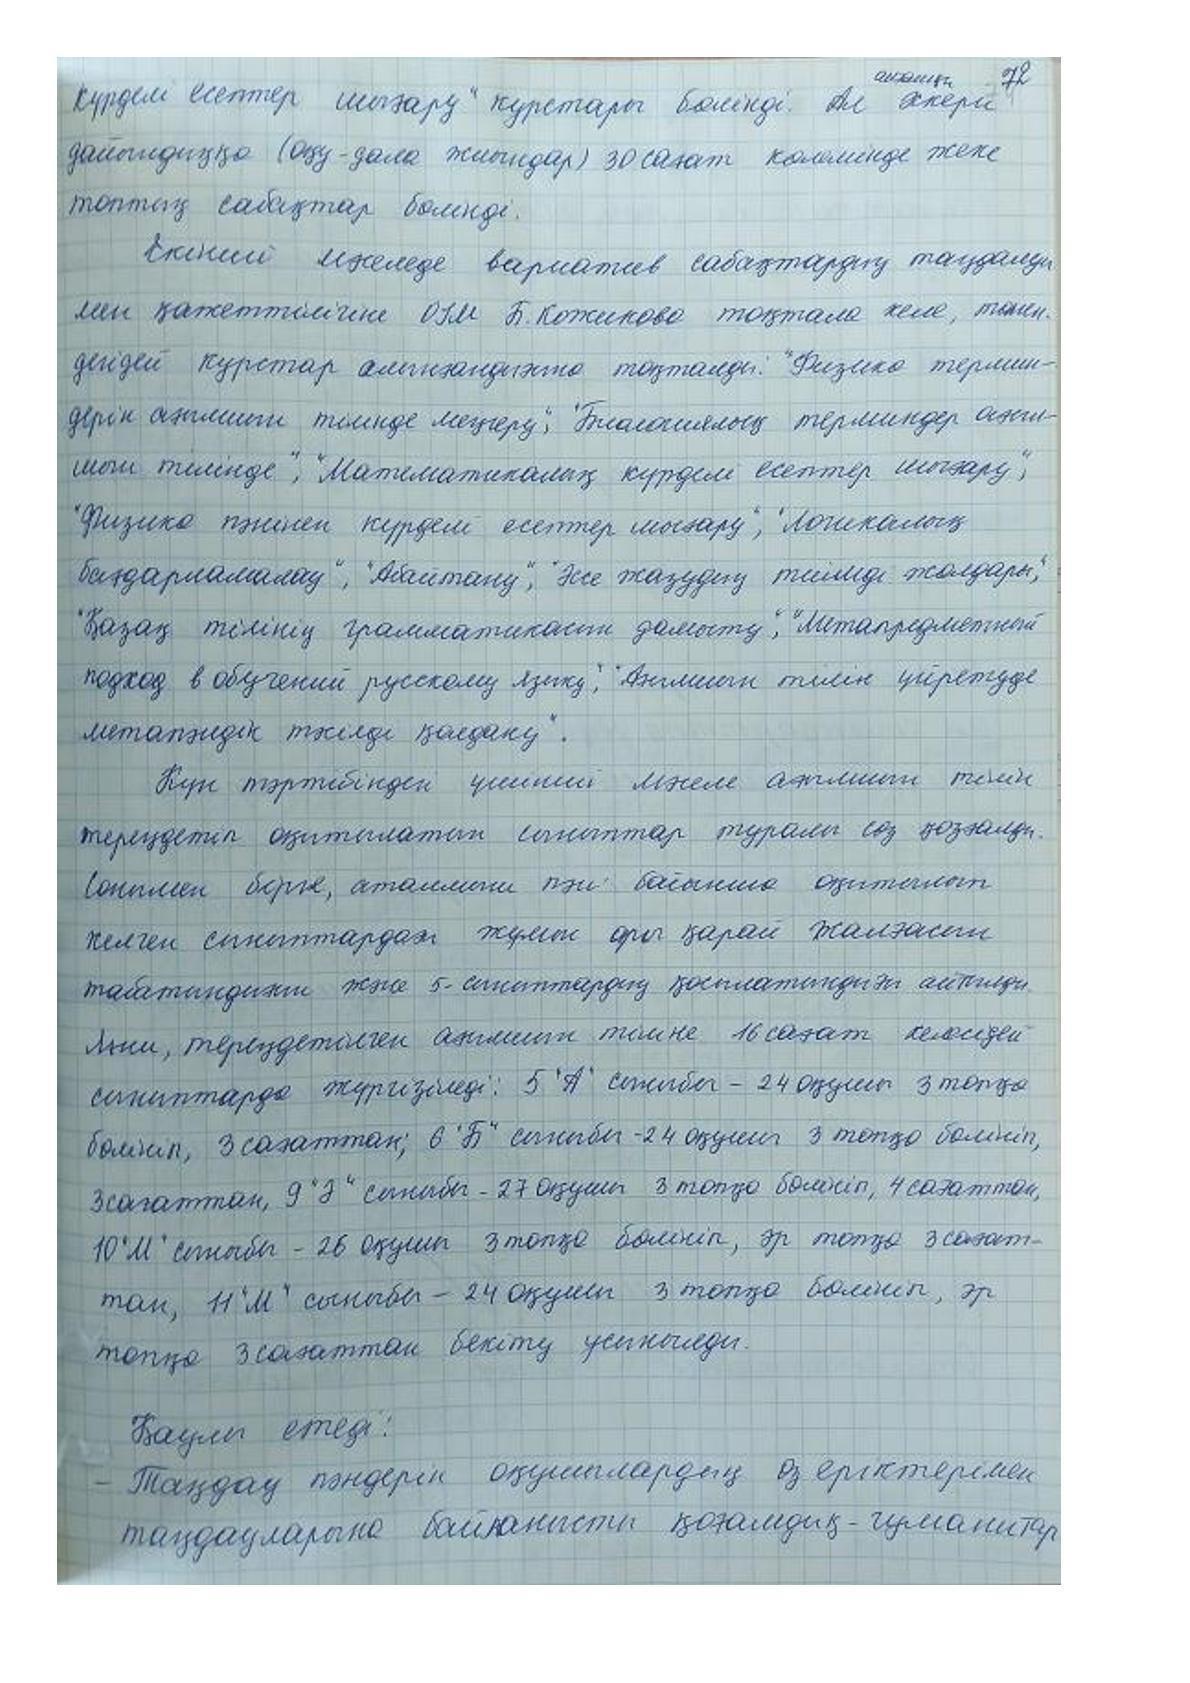 72
күрделі есептер шығару" курстары бөлінді. Ал әскери
дайындыққа (оқу-дала жиындар) 30 сағат көлемінде жеке
топтық сабақтар бөлінді.
Екінші мәселеде вариатив сабақтардың таңдалуы
мен қажеттілігіне ОІМ Б.Кожикова тоқтала келе, төмен-
дегідей курстар алынғандығына тоқталды: "Физика термин-
дерін ағылшын тілінде меңгеру", "Биологиялық терминдер ағыл-
шын тілінде", "Математикалық күрделі есептер шығару",
"Физика пәнінен күрделі есептер шығару", "Логикалық
бағдарламалау", "Абайтану", "Эссе жазудың тиімді жолдары",
"Қазақ тілінің грамматикасын дамыту", "Метапредметный
подход в обучений русскому языку", "Ағылшын тілін үйретуде
метапәндік тәсілді қолдану".
Күн тәртібіндегі үшінші мәселе ағылшын тілін
тереңдетіп оқытылатын сыныптар туралы сөз қозғалды.
Сонымен бірге, аталмыш пән бойынша оқытылып
келген сыныптардағы жұмыс ары қарай жалғасын
табатындығын және 5-сыныптардың қосылатындығы айтылды.
Яғни, тереңдетілген ағылшын тіліне 16 сағат келесідей
сыныптарда жүргізіледі: 5 "А" сыныбы - 24 оқушы 3 топқа
бөлініп, 3 сағаттан; 6 "Б" сыныбы - 24 оқушы 3 топқа бөлініп,
3 сағаттан, 9 "З" сыныбы - 27 оқушы 3 топқа бөлініп, 4 сағаттан,
10 "М" сыныбы - 26 оқушы 3 топқа бөлініп, әр топқа 3 сағат-
тан, 11 "М" сыныбы - 24 оқушы 3 топқа бөлініп, әр
топқа 3 сағаттан бекіту ұсынылды.
Қаулы етеді:
- Таңдау пәндерін оқушылардың өз еріктерімен
таңдауларына байланысты қоғамдық-гуманитар